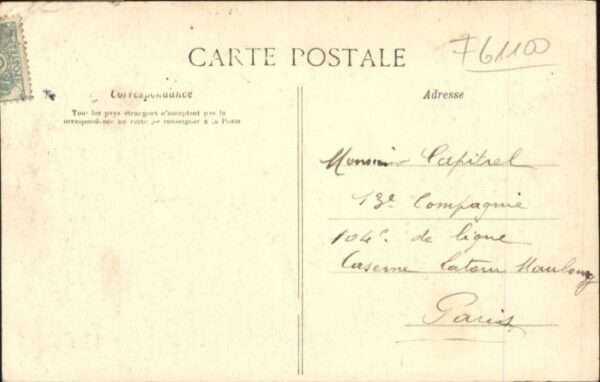 CARTE POSTALE
F61100
Correspondance
Tous les pays étrangers n'acceptent pas la
correspondance au recto se renseigner à la Poste
Adresse
Monsieur Capitrel
13e Compagnie
104e. de ligne
Caserne Latour Maubourg
Paris